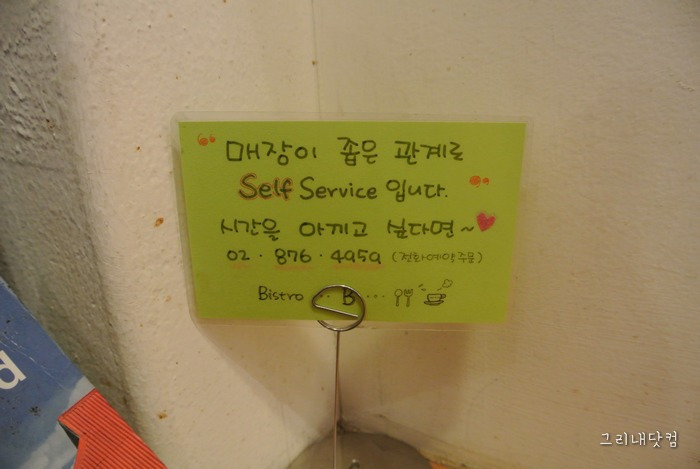 “ 매장이 좁은 관계로
Self Service 입니다. ”
시간을 아끼고 싶다면~
02 · 876 · 4959 (전화예약주문)
Bistro ·· B ···
그리내닷컴
d